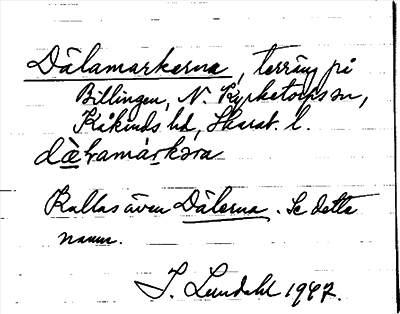 Dälamarkerna, terräng på
Billingen, N. Kyrketorps sn,
Kåkinds hd, Skarab. l.
dälamarkəra
Kallas även Dälerna. Se detta
namn.
I. Lundahl 1947.